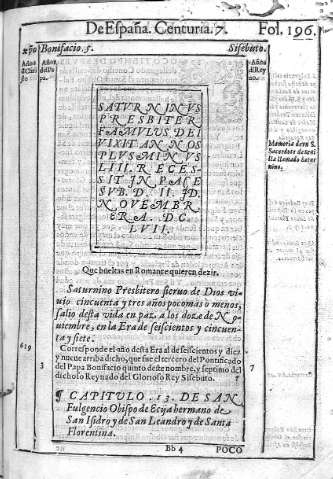 De España. Centuria. 7. Fol. 196.
xp̃o Bonifacio. 5. Sisebuto.
Años Años Años
de Chri del Pa de Rey
sto. pa. no.
SATVRNINVS
PRESBITER
FAMVLVS DEI
VIXIT ANNOS
PLVS MINVS
LIII. RECES-
SIT IN PACE
SVB. D. II. ID.
NOVEMBR
ERA. D.C.
LVII.
Memoria de vn S.
Sacerdote de
llamado Satur
nino.
Que bueltas en Romance quieren dezir.
Saturnino Presbitero sieruo de Dios vi-
uio cincuenta y tres años poco mas o menos,
salio desta vida en paz, a los doze de No-
uiembre, en la Era de seiscientos y cincuen-
ta y siete.
619 Corresponde el año desta Era al de seiscientos y diez
y nueue arriba dicho, que fue el tercero del Pontificado
3 del Papa Bonifacio quinto deste nombre, y septimo del 7
dichoso Reynado del Glorioso Rey Sisebuto.
¶ CAPITVLO. 13. DE SAN
Fulgencio Obispo de Ecija hermano de
San Isidro y de San Leandro y de Santa
Florentina.
Bb 4 POCO